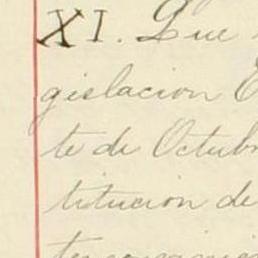 XI. Que
gislacion
te de Octubr
titucion de